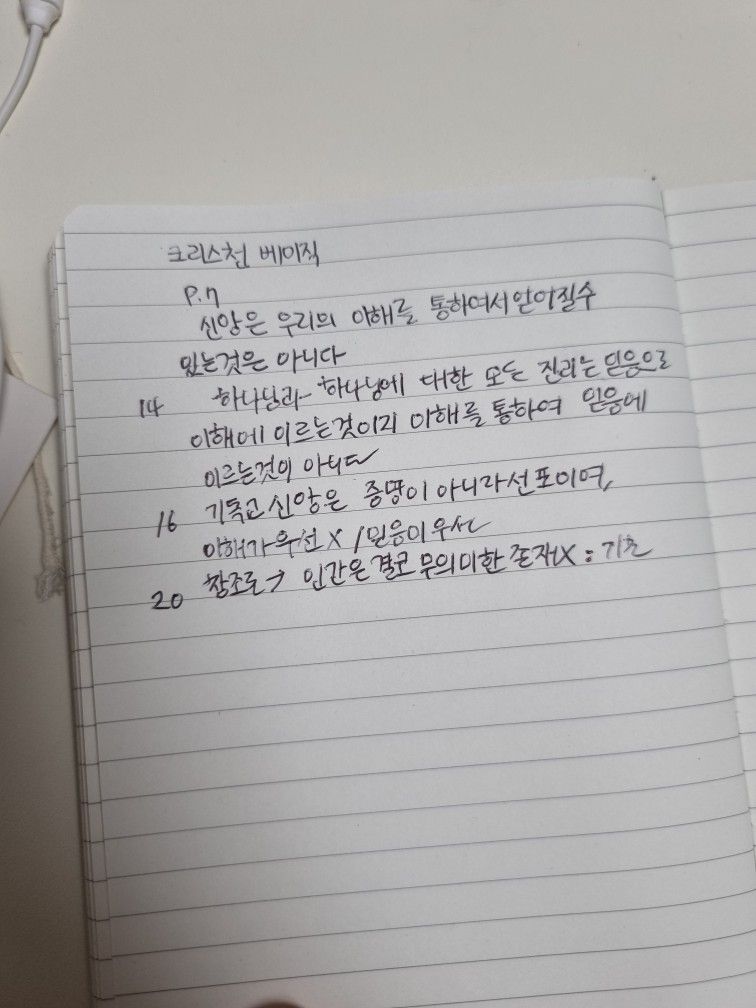 크리스천 베이직
P.7
신앙은 우리의 이해를 통하여서 얻어질수
있는것은 아니다
14 하나님과 하나님에 대한 모든 진리는 믿음으로
이해에 이르는것이지 이해를 통하여 믿음에
이르는것이 아니다
16 기독교 신앙은 증명이 아니라 선포이며,
이해가 우선 X / 믿음이 우선
20 창조론 → 인간은 결코 무의미한 존재X : 기초